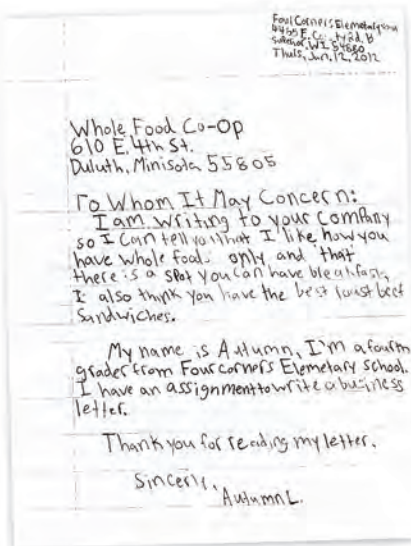 Four Corners Elemetary
4465 E. Co. Rd. B
Superior, WI 54880
Thurs, Jan. 12, 2012
Whole Food Co-Op
610 E. 4th St.
Duluth, Minisota 55805
To Whom It May Concern:
I am writing to your company
so I can tell you that I like how you
have whole food only and that
there is a spot you can have breakfast.
I also think you have the best roast beef
sandwiches.
My name is Autumn, I'm a fourth
grader from Four Corners Elemetary School.
I have an assignment to write a business
letter.
Thank you for reading my letter.
Sincerly,
Autumn L.